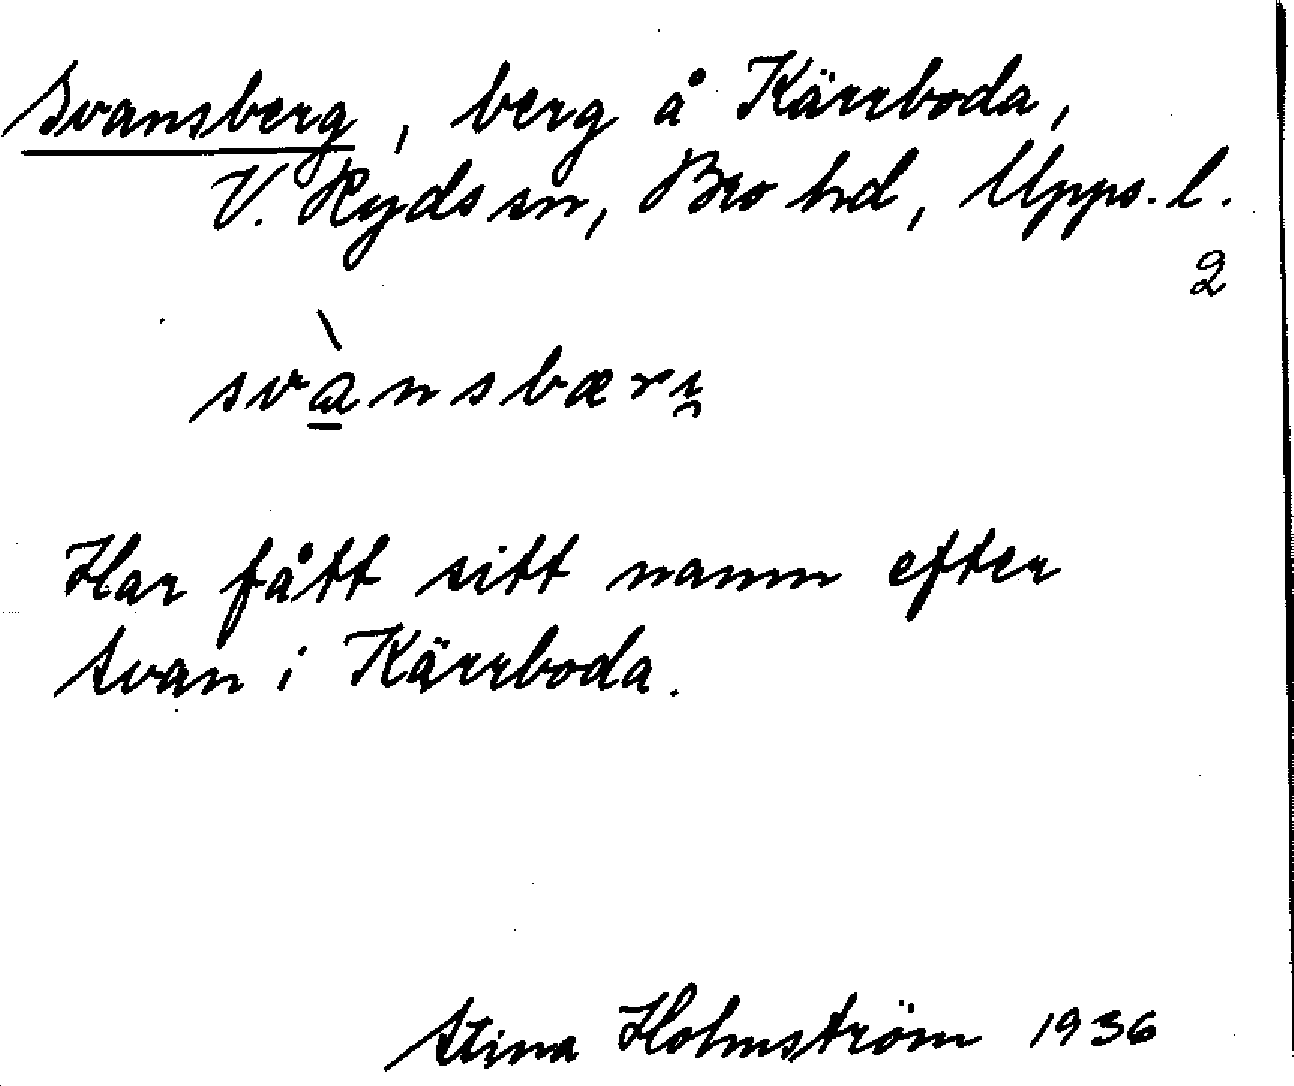 Svansberg, berg å Kärrboda,
V. Ryds sn, Bro hd, Upps. l.
2
svànsbærı̯
Har fått sitt namn efter
Svan i Kärrboda.
Stina Holmström 1936